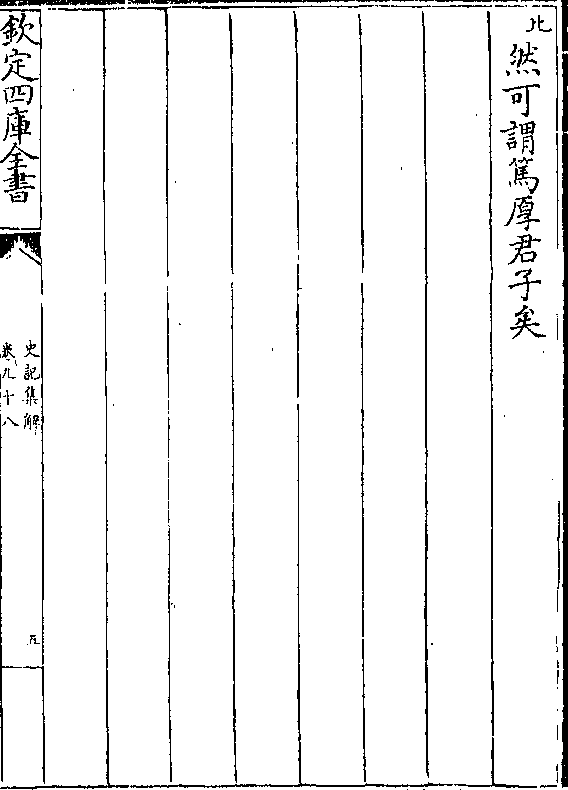 北然可謂篤厚君子矣
欽定四庫全書
史記集解
卷九十八
五